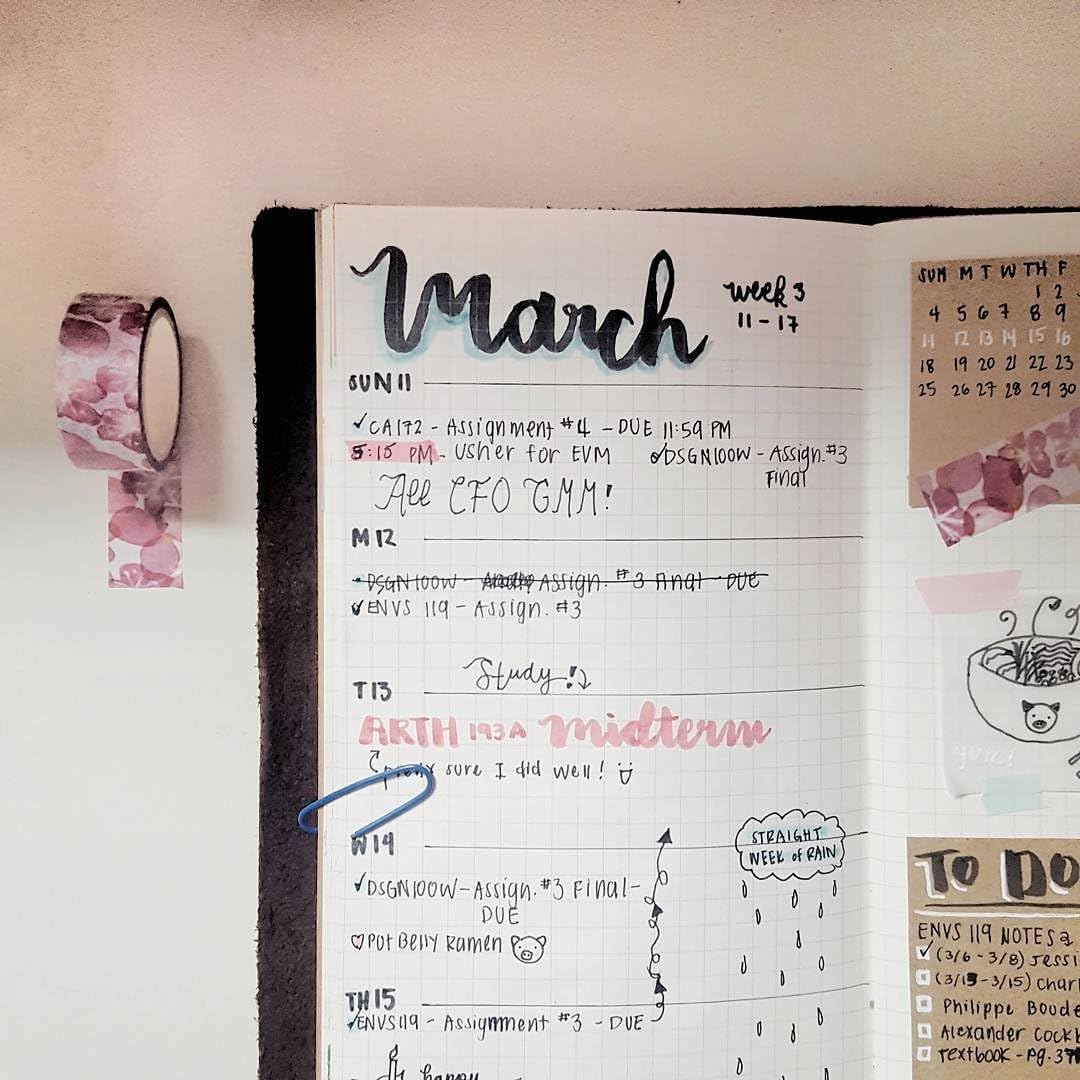 March
week 3
11 - 17
SUN 11
✓CA172 - Assignment #4 - DUE 11:59 PM
5:15 PM - Usher for EVM
✓DSGN100W - Assign. #3
Final
All CFO GMM!
M 12
• DSGN100W - Assign. #3 Final - DUE
✓ENVS 119 - Assign. #3
Study!
T 13
ARTH 193A midterm
sure I did well!
W 14
STRAIGHT
WEEK of RAIN
✓DSGN100W - Assign. #3 Final -
DUE
♡ Pot Belly Ramen
TH 15
✓ENVS119 - Assignment #3 - DUE
happy
SUN M T W TH F
1 2
4 5 6 7 8 9
11 12 13 14 15 16
18 19 20 21 22 23
25 26 27 28 29 30
yum!
TO DO
ENVS 119 NOTES
(3/6 - 3/8)
(3/13 - 3/15)
Philippe
Alexander
Textbook - pg.